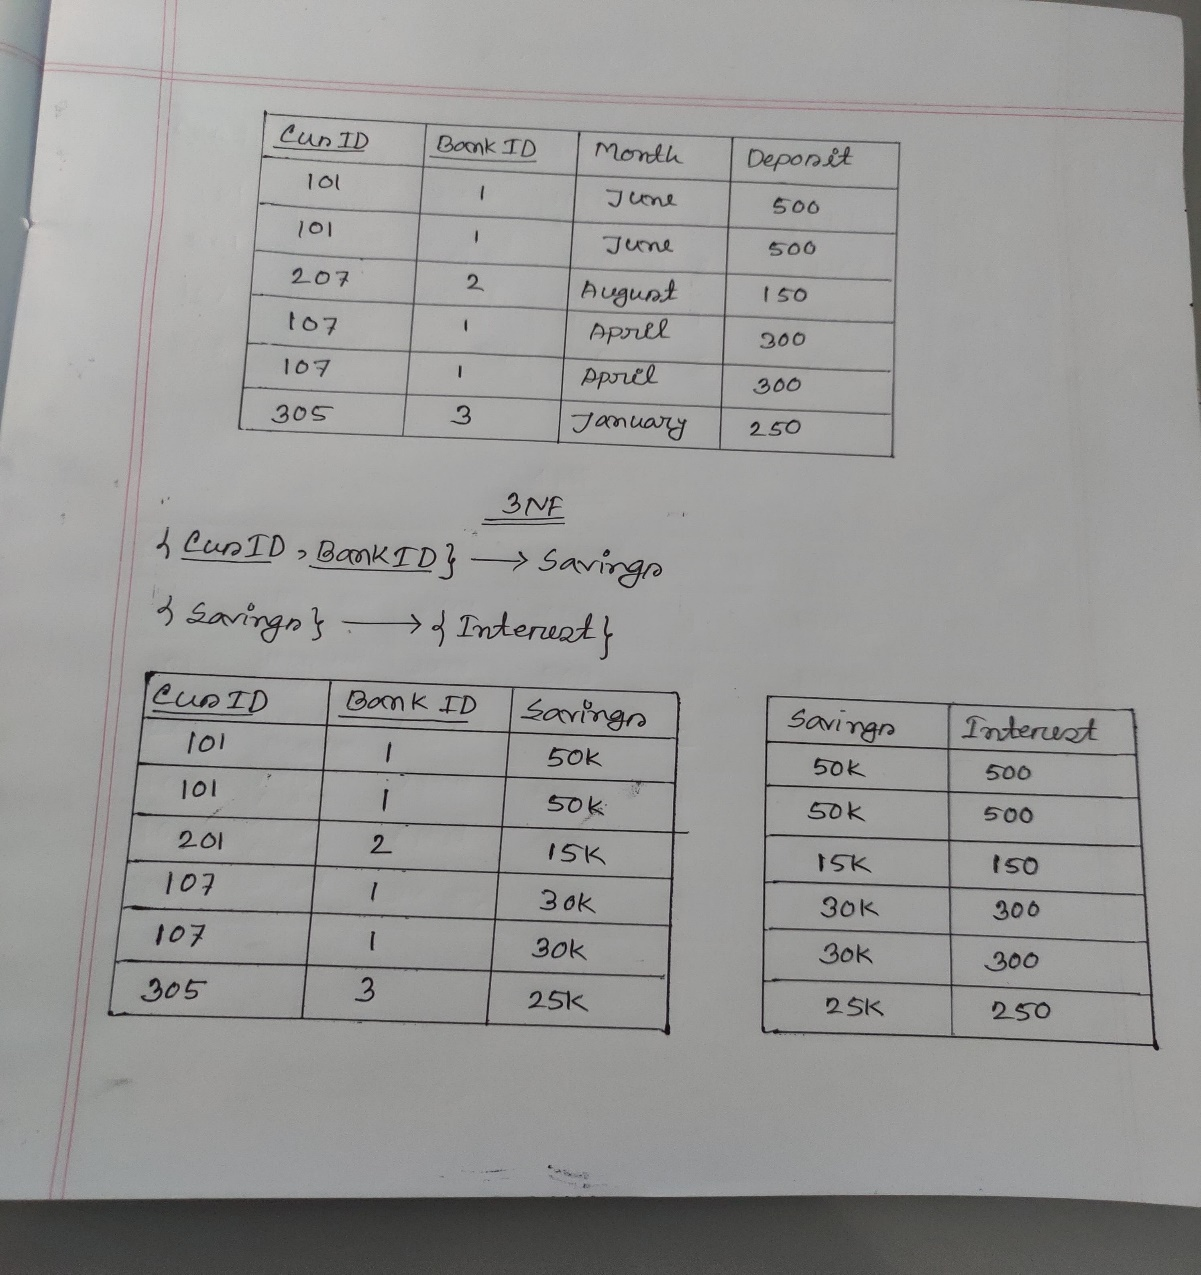 CusID Bank ID Month Deposit
101 1 June 500
101 1 June 500
207 2 August 150
107 1 April 300
107 1 April 300
305 3 January 250
3NF
{CusID, BankID} → Savings
{Savings} → {Interest}
CusID Bank ID Savings
101 1 50K
101 1 50K
201 2 15K
107 1 30K
107 1 30K
305 3 25K
Savings Interest
50K 500
50K 500
15K 150
30K 300
30K 300
25K 250